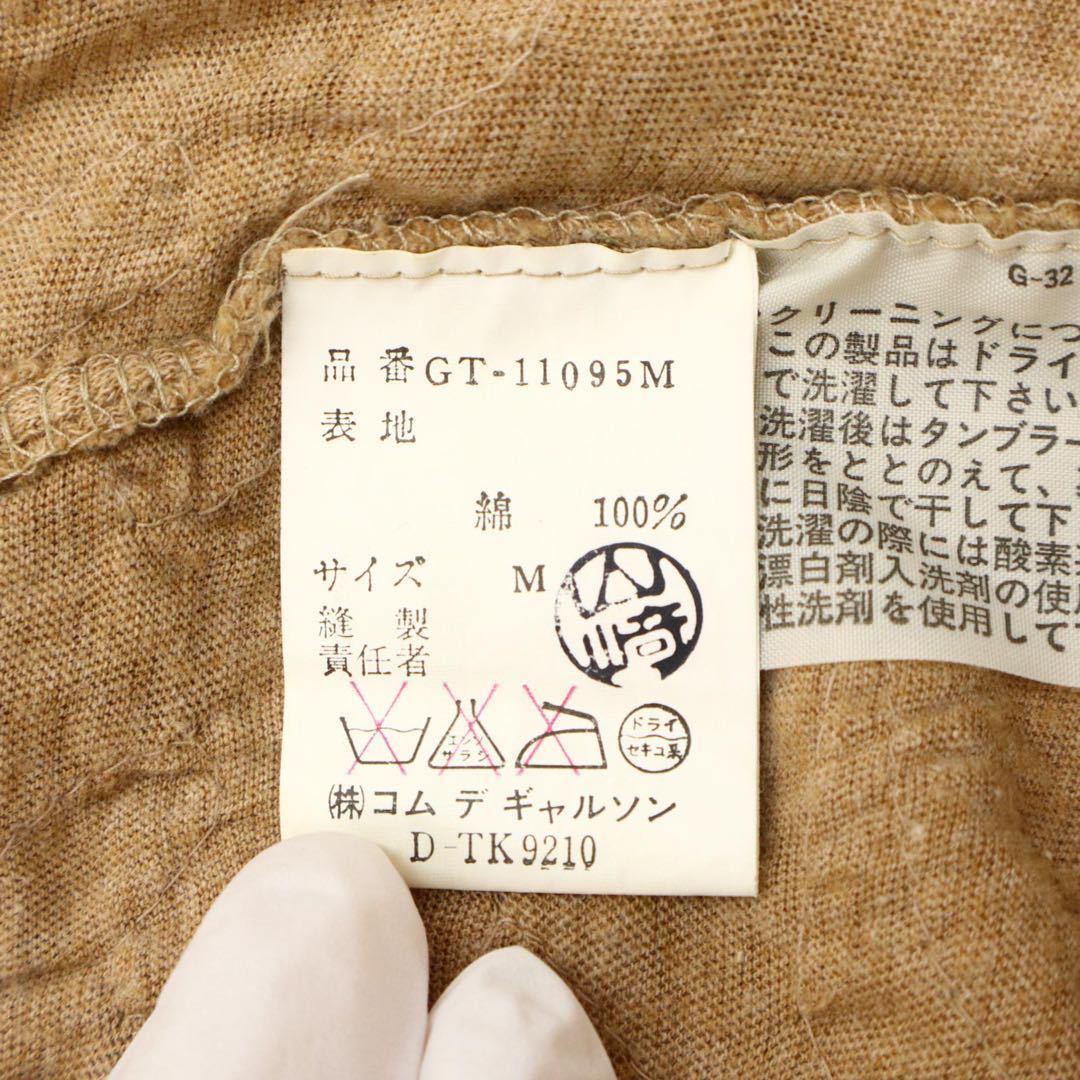 品番 GT-11095M
表地
綿 100%
サイズ M
縫製
責任者
山崎
エンソ
サラシ
ドライ
セキユ系
㈱コム デ ギャルソン
D-TK9210
G-32
クリーニングにつ
この製品はドライ
で洗濯して下さい
洗濯後はタンブラー
形をととのえて、
に日陰で干して下
洗濯の際には酸素
漂白剤入洗剤の使
性洗剤を使用して